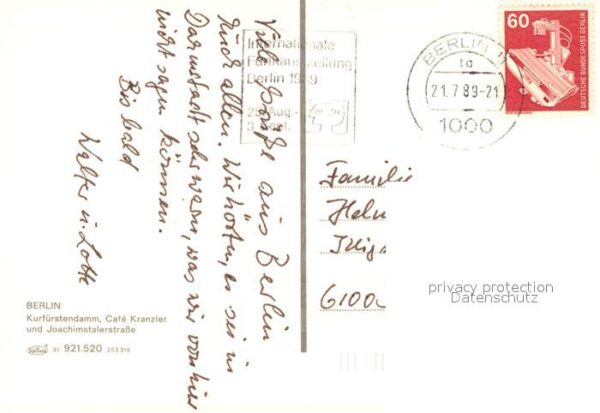 Viele Grüße aus Berlin
Euch allen. Wir hörten, es sei in
Darmstadt sehr warm, was wir von hier
nicht sagen können.
Bis bald
Walter u. Lotte
Internationale
Funkausstellung
Berlin 1989
25. Aug.-
3. Sept.
BERLIN 11
ta
21.7.89-21
1000
60
DEUTSCHE BUNDESPOST BERLIN
Familie
Helm
6100
privacy protection
Datenschutz
BERLIN
Kurfürstendamm, Café Kranzler
und Joachimstalerstraße
31 921.520 263 319